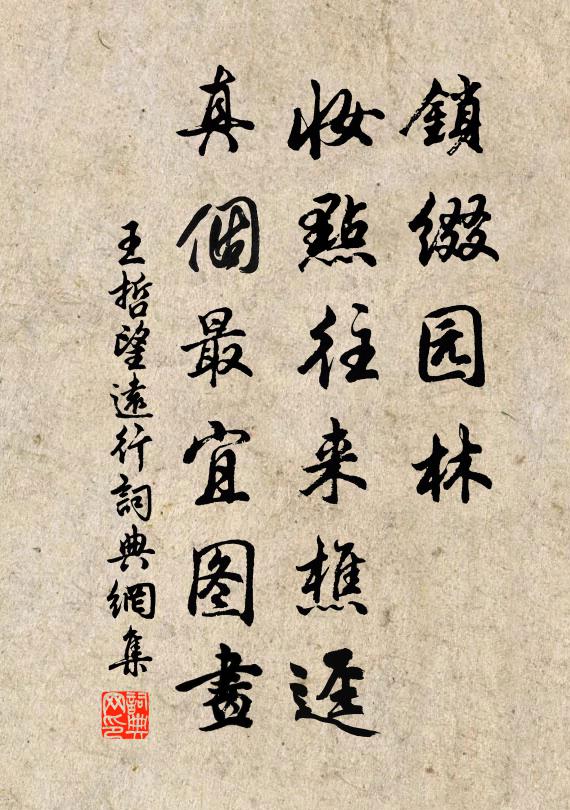 鎖綴园林
妆點往来樵逕
真個最宜图畫
王哲望遠行詞典網集
詞典
网印